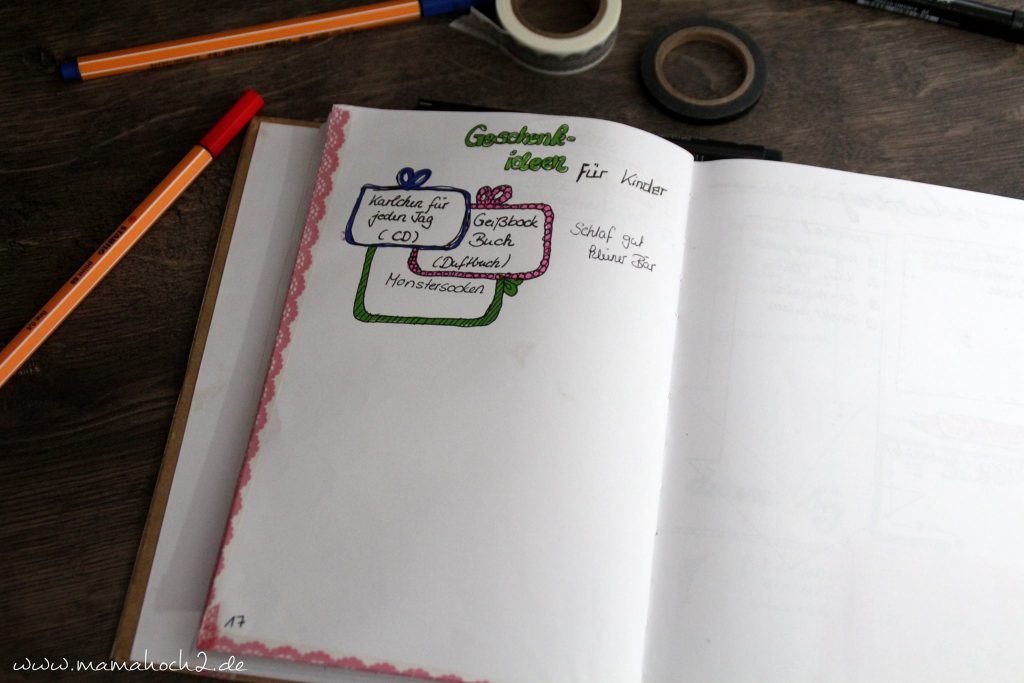 Geschenk-
ideen
Für Kinder
Karlchen für
jeden Tag
(CD)
Geißbock
Buch
(Duftbuch)
Monstersocken
Schlaf gut
kleiner Bär
17
STABILO
www.mamahoch2.de